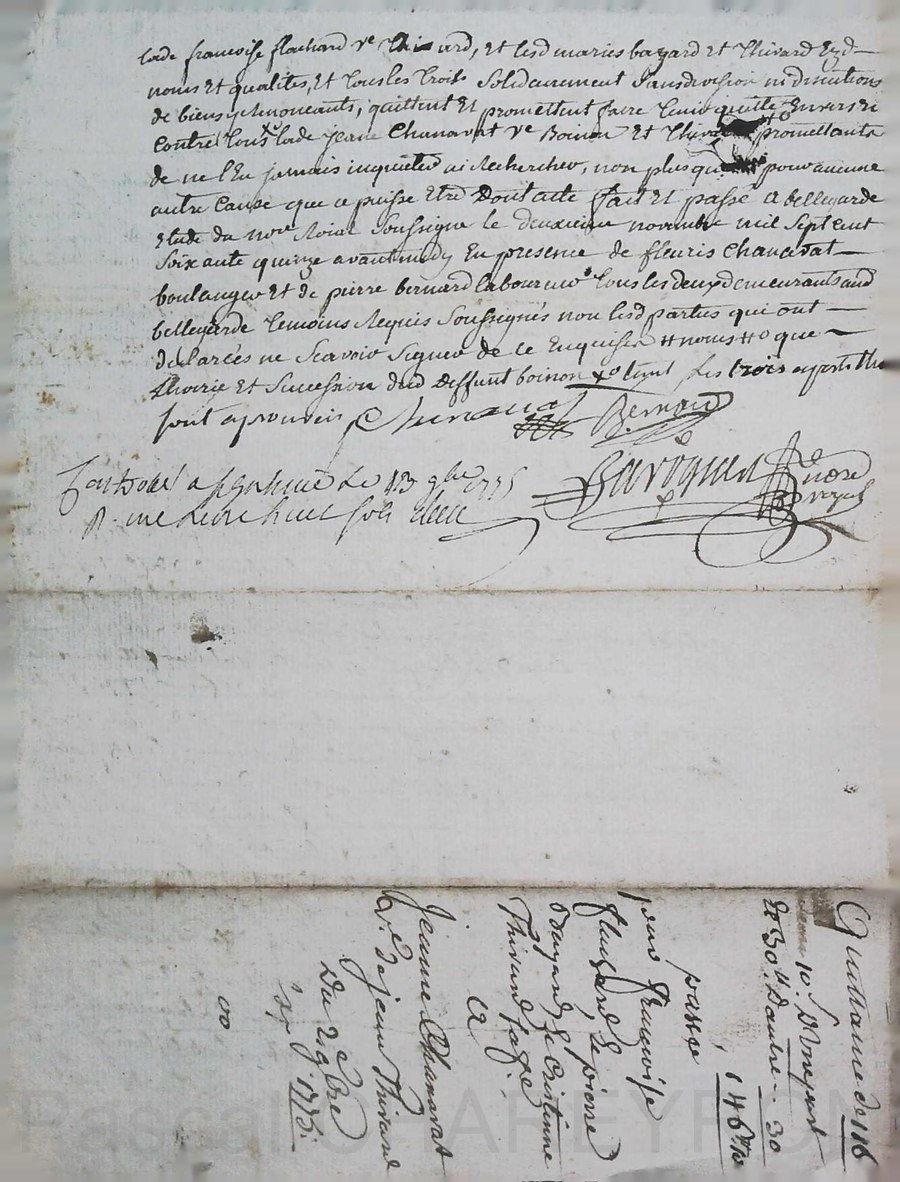 lade francoise flachard ve thivard, Et lesd maries bayard et thivard Eyd
noms Et qualites, Et tous les trois solidairement sans division ni discutions
de biens y Renoncants, quittent Et promettent faire tenir quitte Envers Et
contre tous lade jeane Chanavat ve Boinon Et promettants
de ne l'En jamais inquieter ni Rechercher, non plus pour aucune
autre Cause que ce puisse Etre Dont acte fait Et passé a bellegarde
Etude du nore Roial soussigné le deuxieme novembre mil sept cent
soixante quinze avant midy En presence de fleuris Chanavat
boulanger Et de pierre bernard laboureur tous les deux demeurants aud
bellegarde temoins Requis soussignés non lesd parties qui ont
declarées ne scavoir signer de ce Enquises # noms # o que
Et succession dud deffunt boinon les trois
sont aprouvés Chanavat Bernard
Controlé a le 13 9bre 1775
R. une livre huit sols
Quittance de 116
10s
Et 30tt Dautre - 30
146tt
passee
par françoise
flachard Et pierre
bayard Et Cristinne
Thivard sa fe
a
Jeanne Chanavat
ve de jean Thivard
Du 2e 9bre
1775